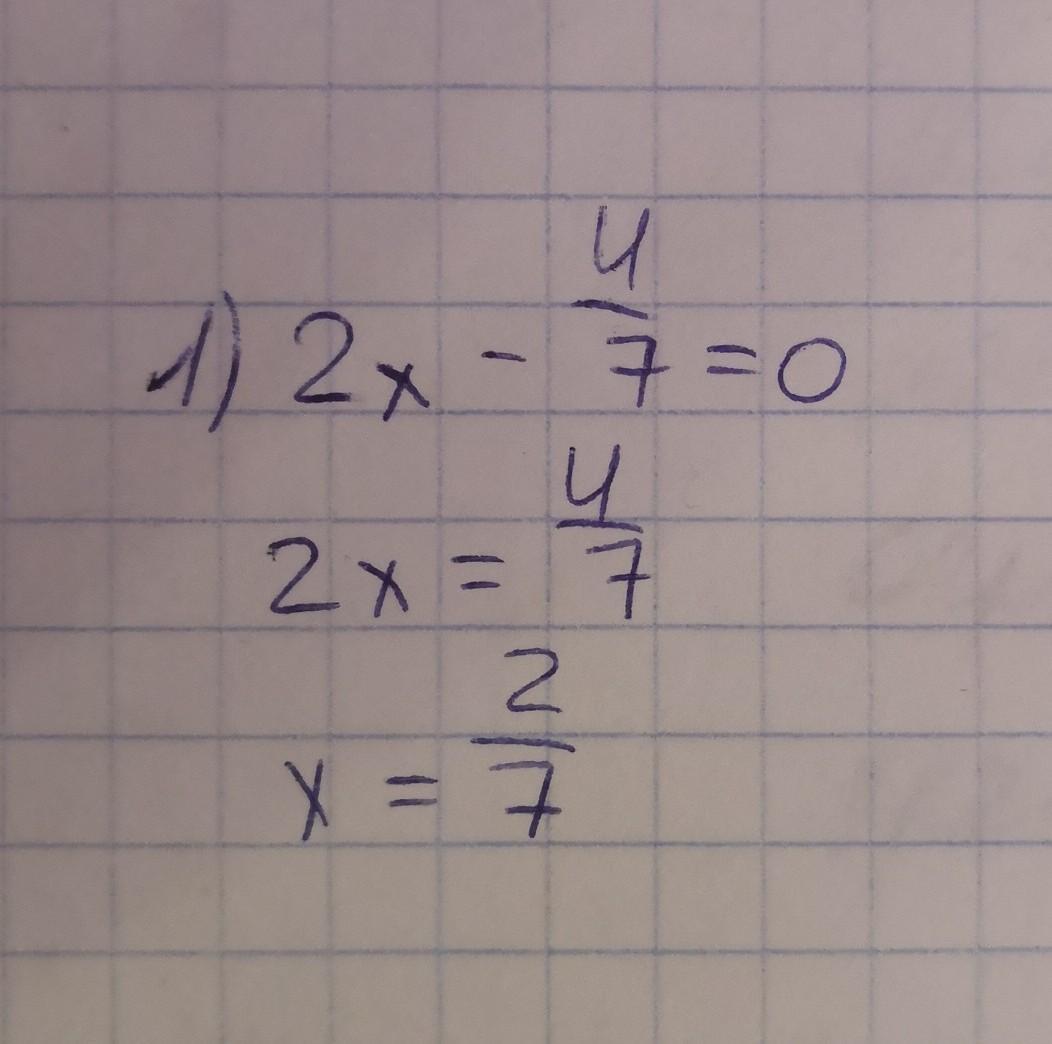 1) 2x - 4/7 = 0
2x = 4/7
x = 2/7